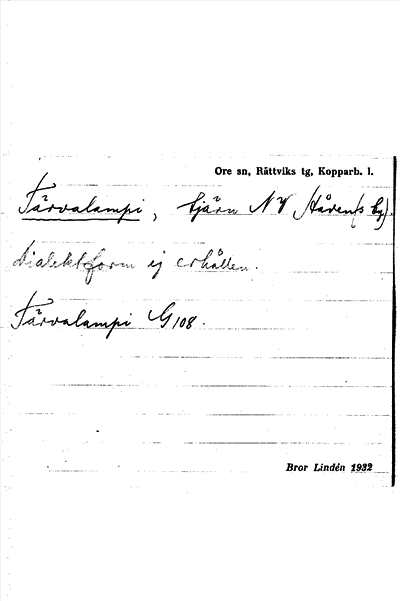 Ore sn, Rättviks tg, Kopparb. l.
Tärvalampi, tjärn NV Håven(s by).
Dialektform ej erhållen.
Tärvalampi G 108.
Bror Lindén 1932